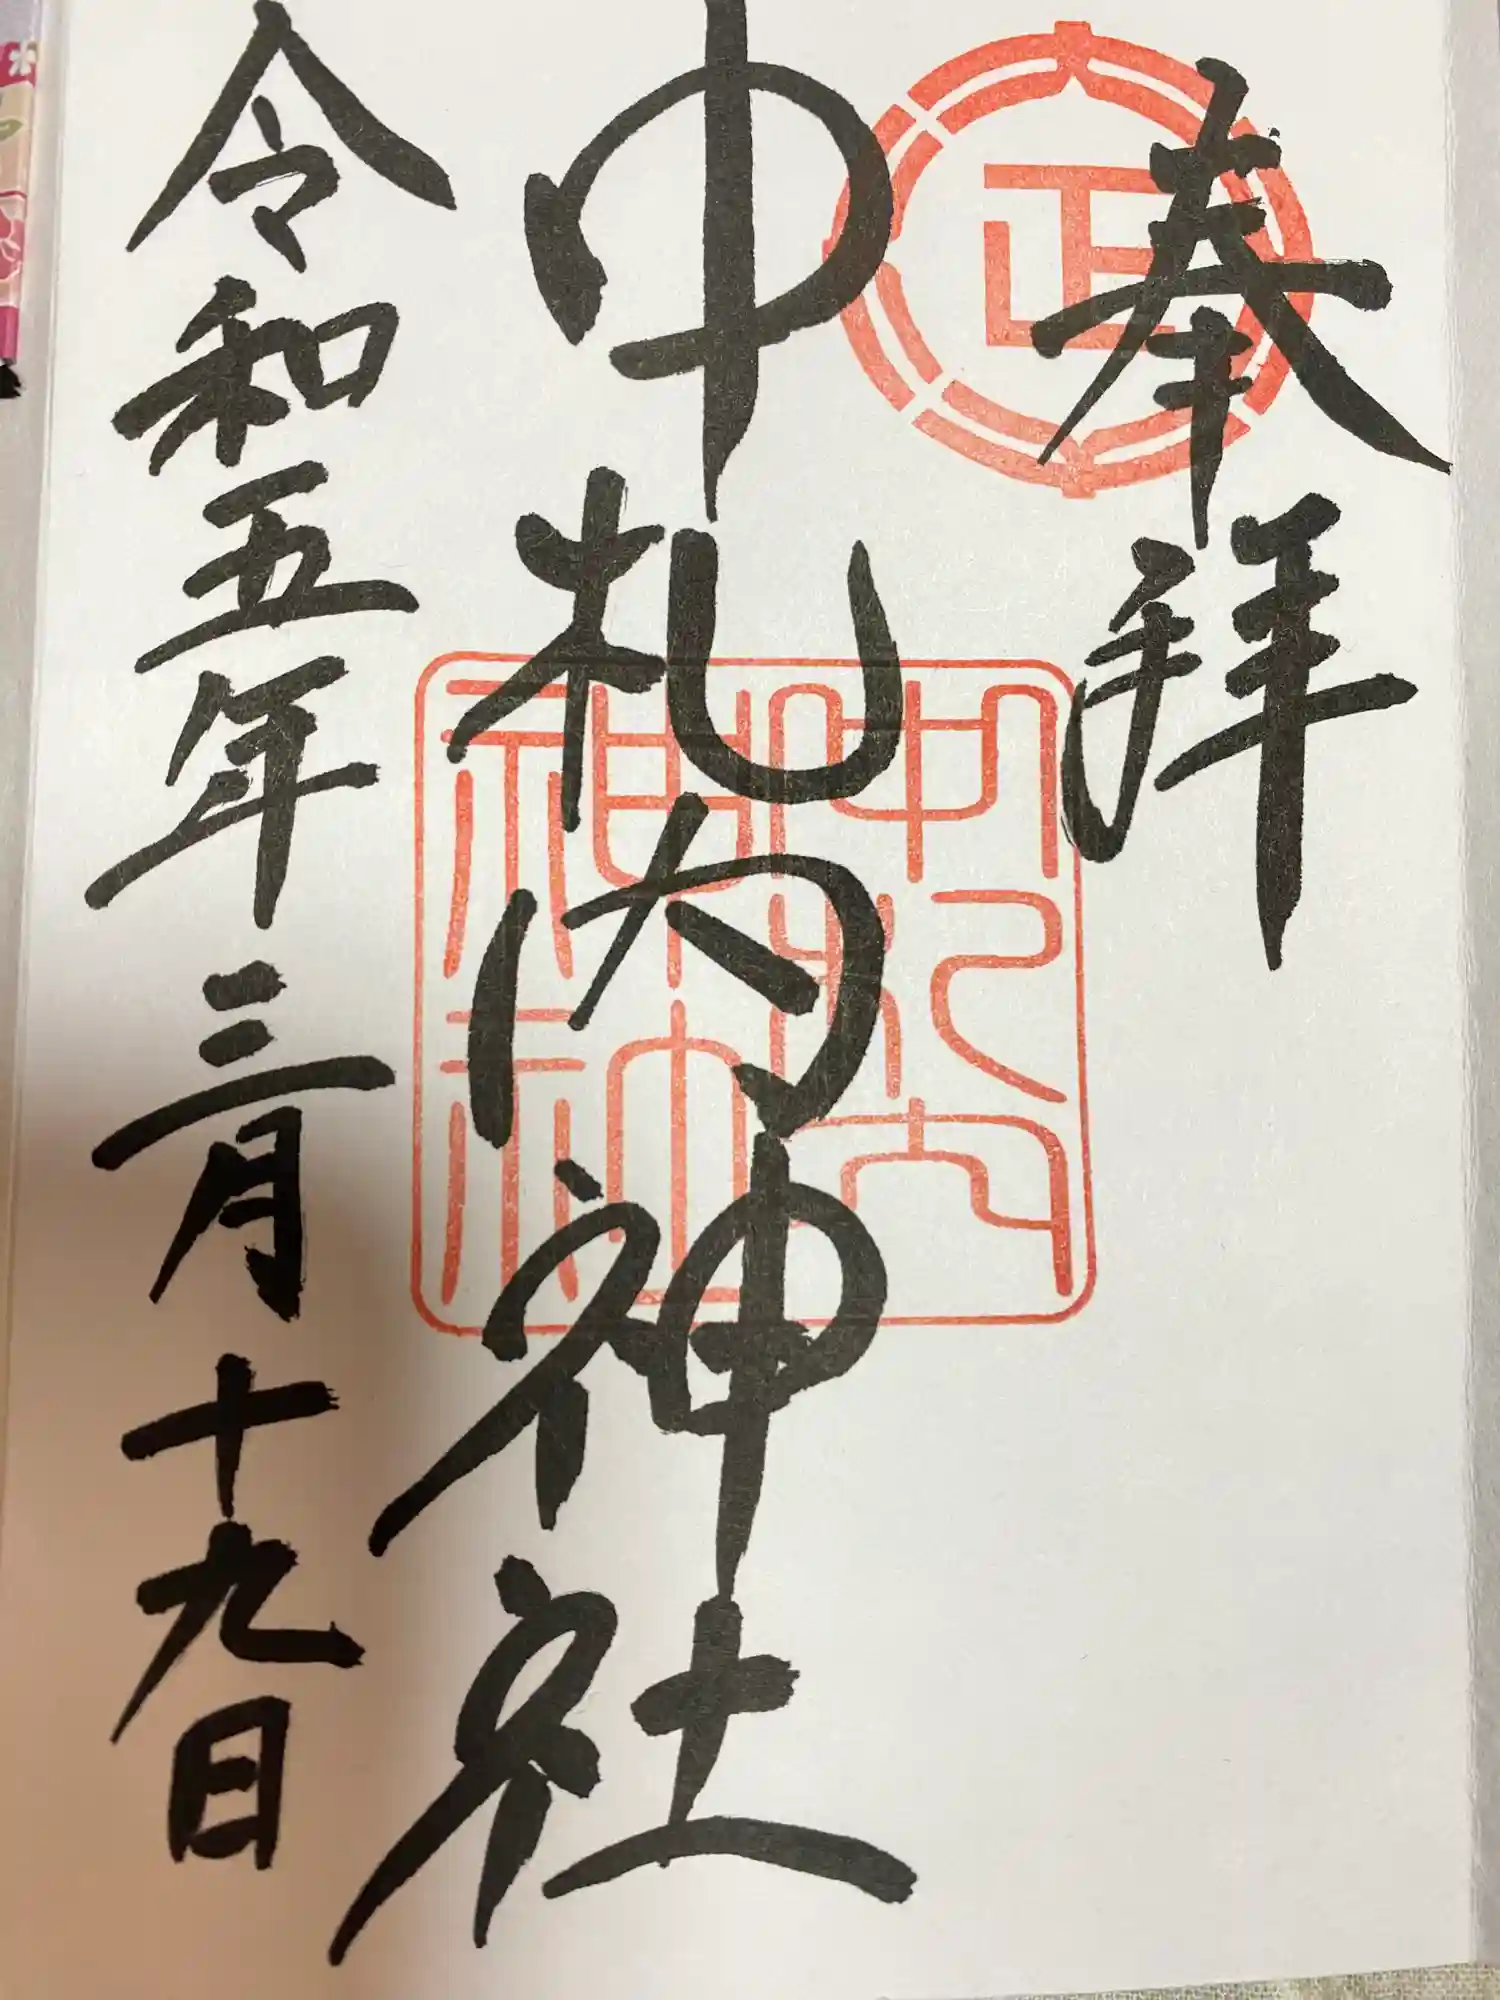 奉拝
正
中札内神社
中札内神社神印
令和五年三月十九日